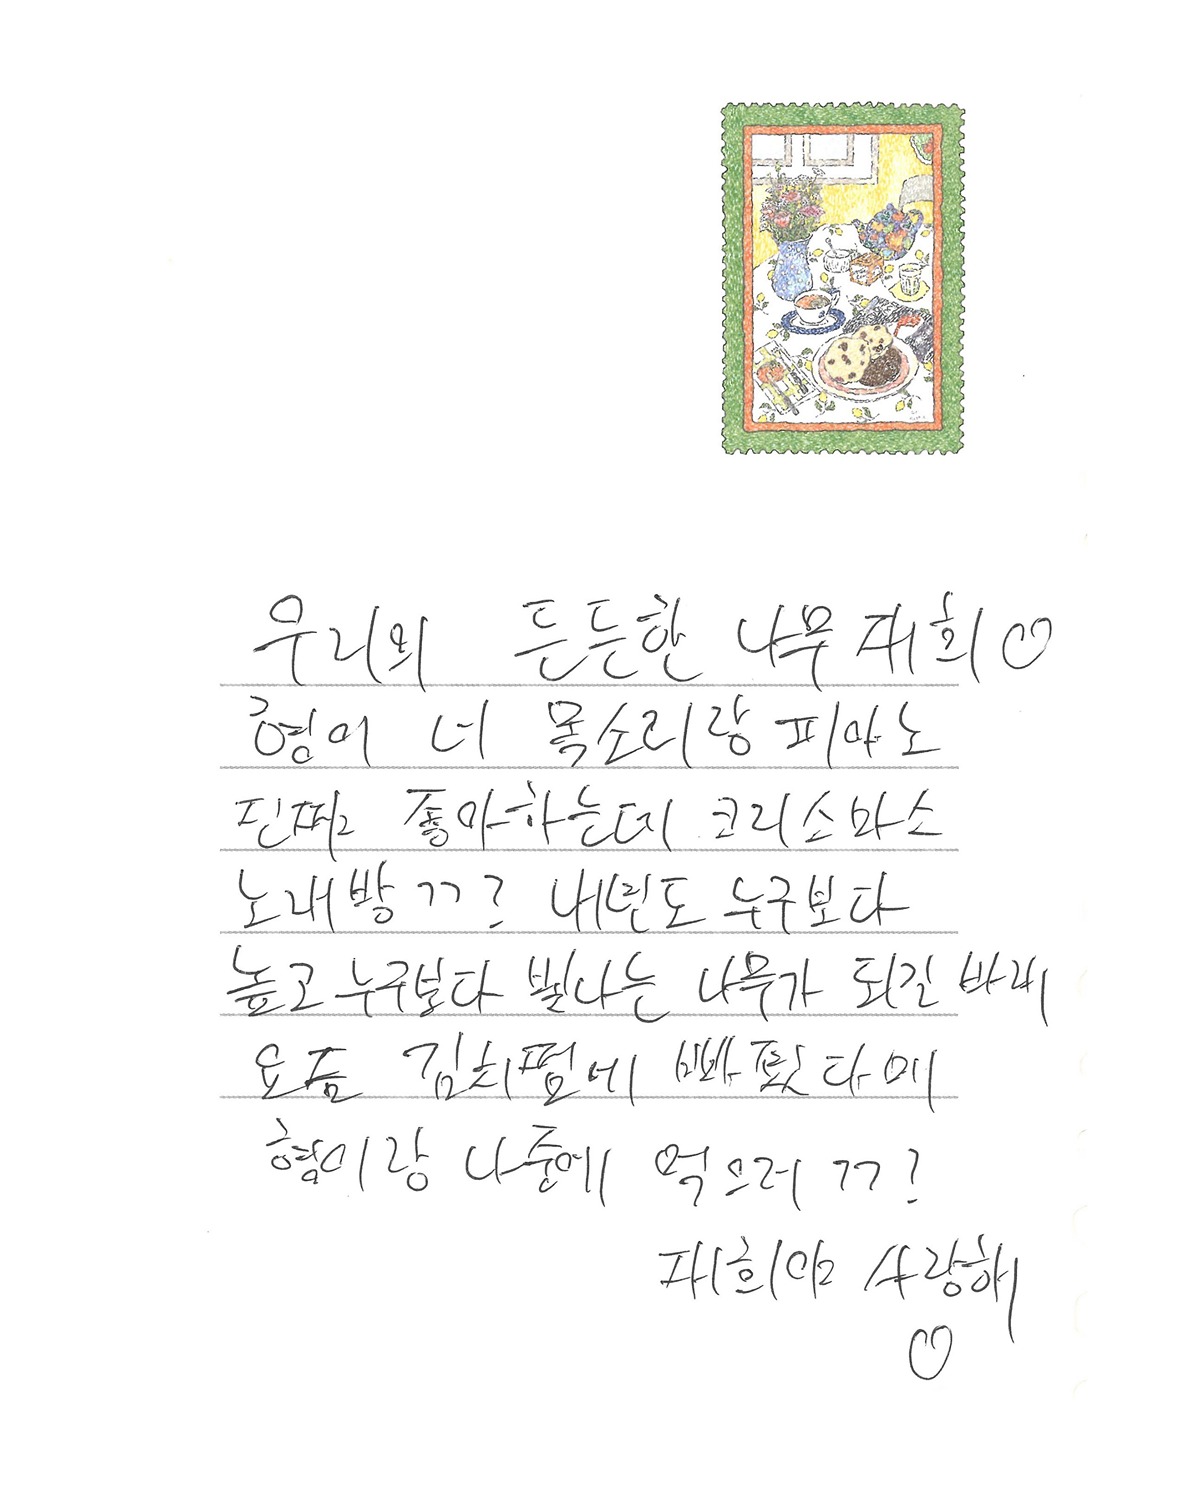 우리의 든든한 나무 재희♡
형이 너 목소리랑 피아노
진짜 좋아하는데 크리스마스
노래방 ㄱㄱ? 내년도 누구보다
높고 누구보다 빛나는 나무가 되길 바래
요즘 김치찜에 빠졌다며
형이랑 나중에 먹으러 ㄱㄱ?
재희야 사랑해
♡